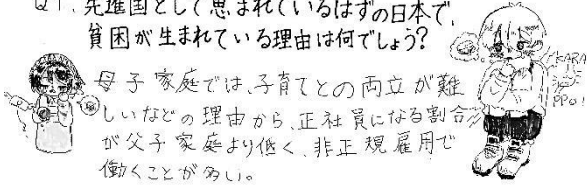 Q1. 先進国として恵まれているはずの日本で、
貧困が生まれている理由は何でしょう?
母子家庭では、子育てとの両立が難
しいなどの理由から、正社員になる割合
が父子家庭より低く、非正規雇用で
働くことが多い。
KARA
PPO!